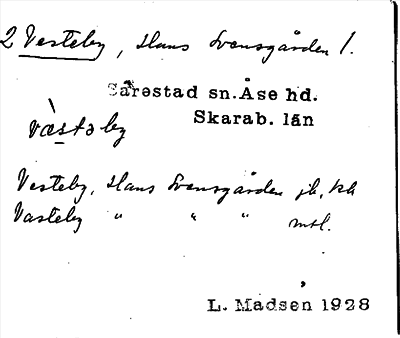 2 Västeby, Hans Svensgården 1.
Särestad sn. Åse hd.
Skarab. län
væ̀stəby
Vesteby, Hans Svensgården jb, kk
Vasteby " " " mtl.
L. Madsen 1928